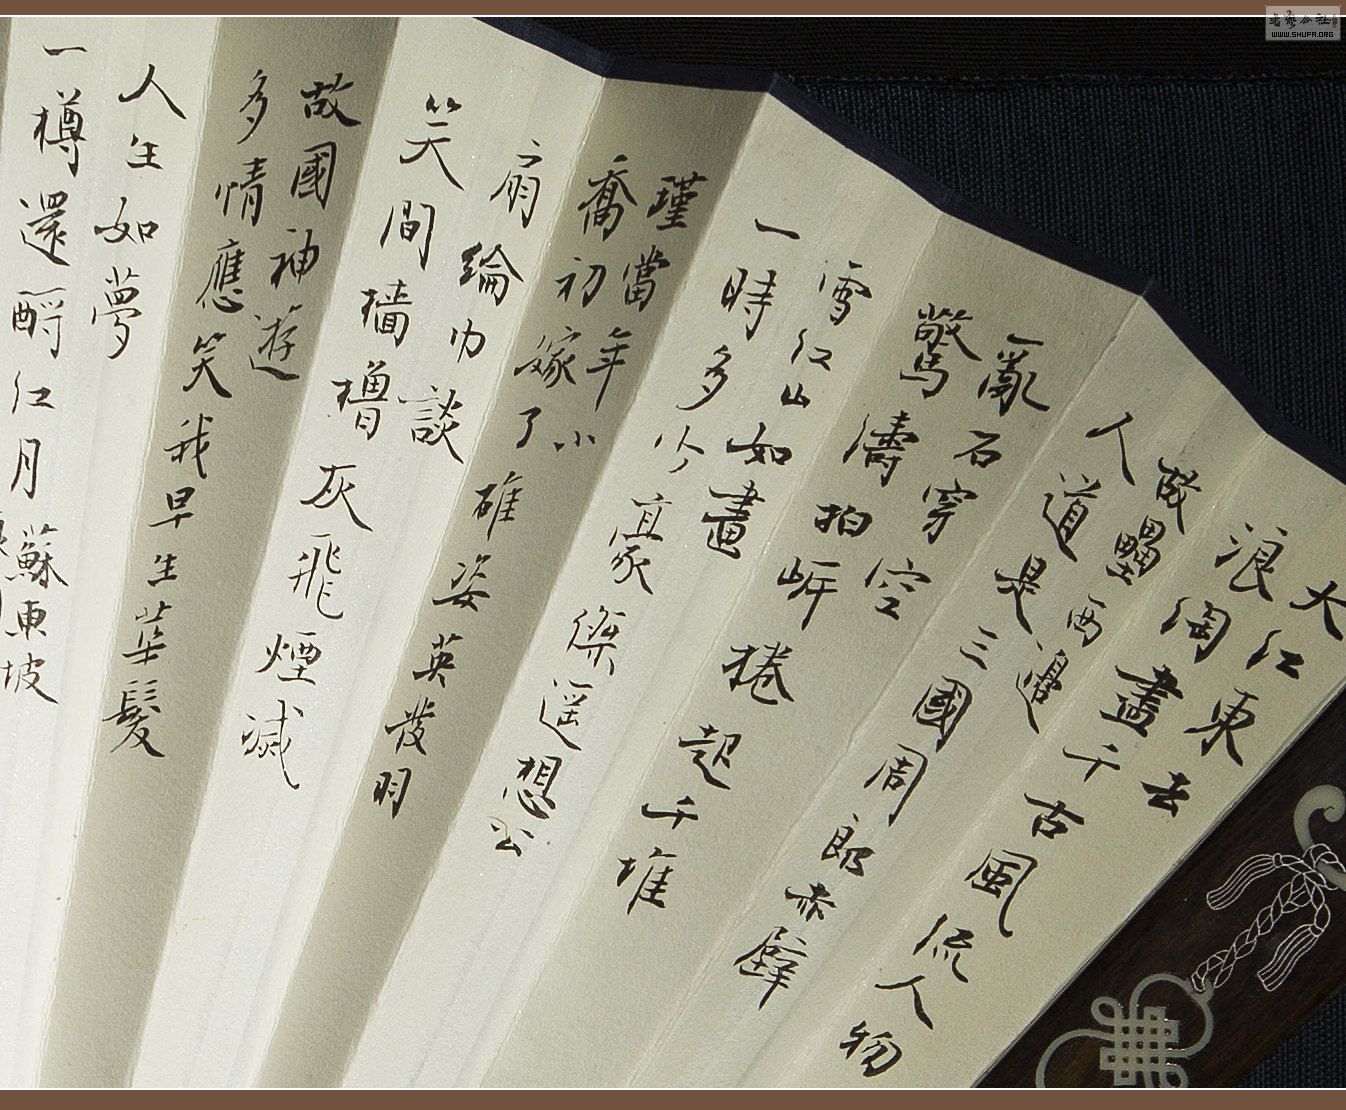 大江東去
浪淘盡千古風流人物
故壘西邊
人道是三國周郎赤壁
亂石穿空
驚濤拍岸捲起千堆
雪江山如畫
一時多少豪傑遥想公
瑾當年小
喬初嫁了雄姿英發羽
扇綸巾談
笑間檣櫓灰飛煙滅
故國神遊
多情應笑我早生華髮
人生如夢
一樽還酹江月
蘇東坡
WWW.SHUFA.ORG